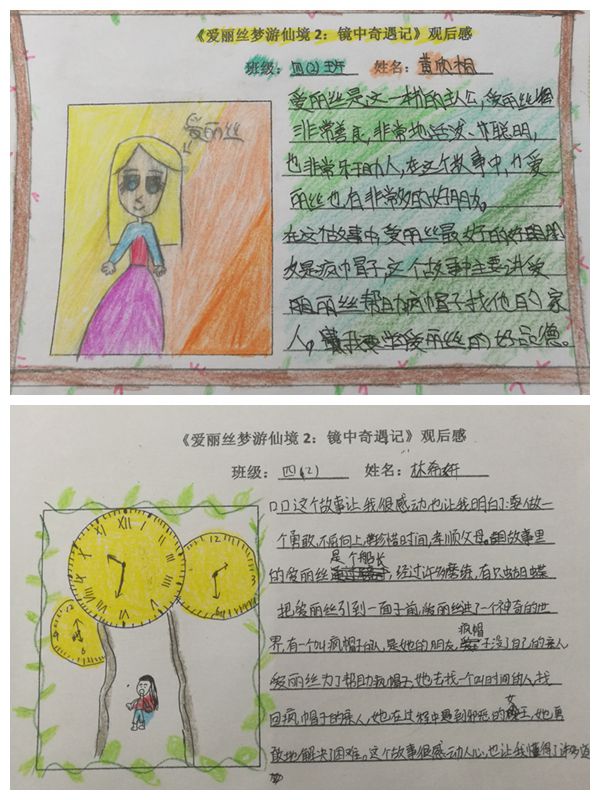 《爱丽丝梦游仙境2：镜中奇遇记》观后感
班级：四(2)班 姓名：黄欣桐
爱丽丝
爱丽丝是这一本的主人公,爱丽丝
非常善良,非常地活泼、聪明,
也非常乐于助人,在这个故事中,爱
丽丝也有非常多的好朋友。
在这个故事中,爱丽丝最好的好朋
友是疯巾冒子,这个故事中主要讲爱
丽丝帮助疯巾冒子找他的家
人,我要学爱丽丝的好品德。
《爱丽丝梦游仙境2：镜中奇遇记》观后感
班级：四(2) 姓名：林希妍
XII
12
12
6
口口这个故事让我很感动也让我明白了:要做一
个勇敢,不后向上,珍惜时间,孝顺父母。故事里
是个船长
的爱丽丝,经过许多磨练,有只蝴蝶
把爱丽丝引到一面子前,爱丽丝进了一个神奇的世
疯帽
界,有一个叫疯帽子的人,是她的朋友,子没了自己的亲人
爱丽丝为了帮助疯帽子,她去找一个叫时间的人,找
女
回疯帽子的亲人,她在过程中遇到邪恶的王,她勇
敢地解决了困难。这个故事很感动人心,也让我懂得了许多道